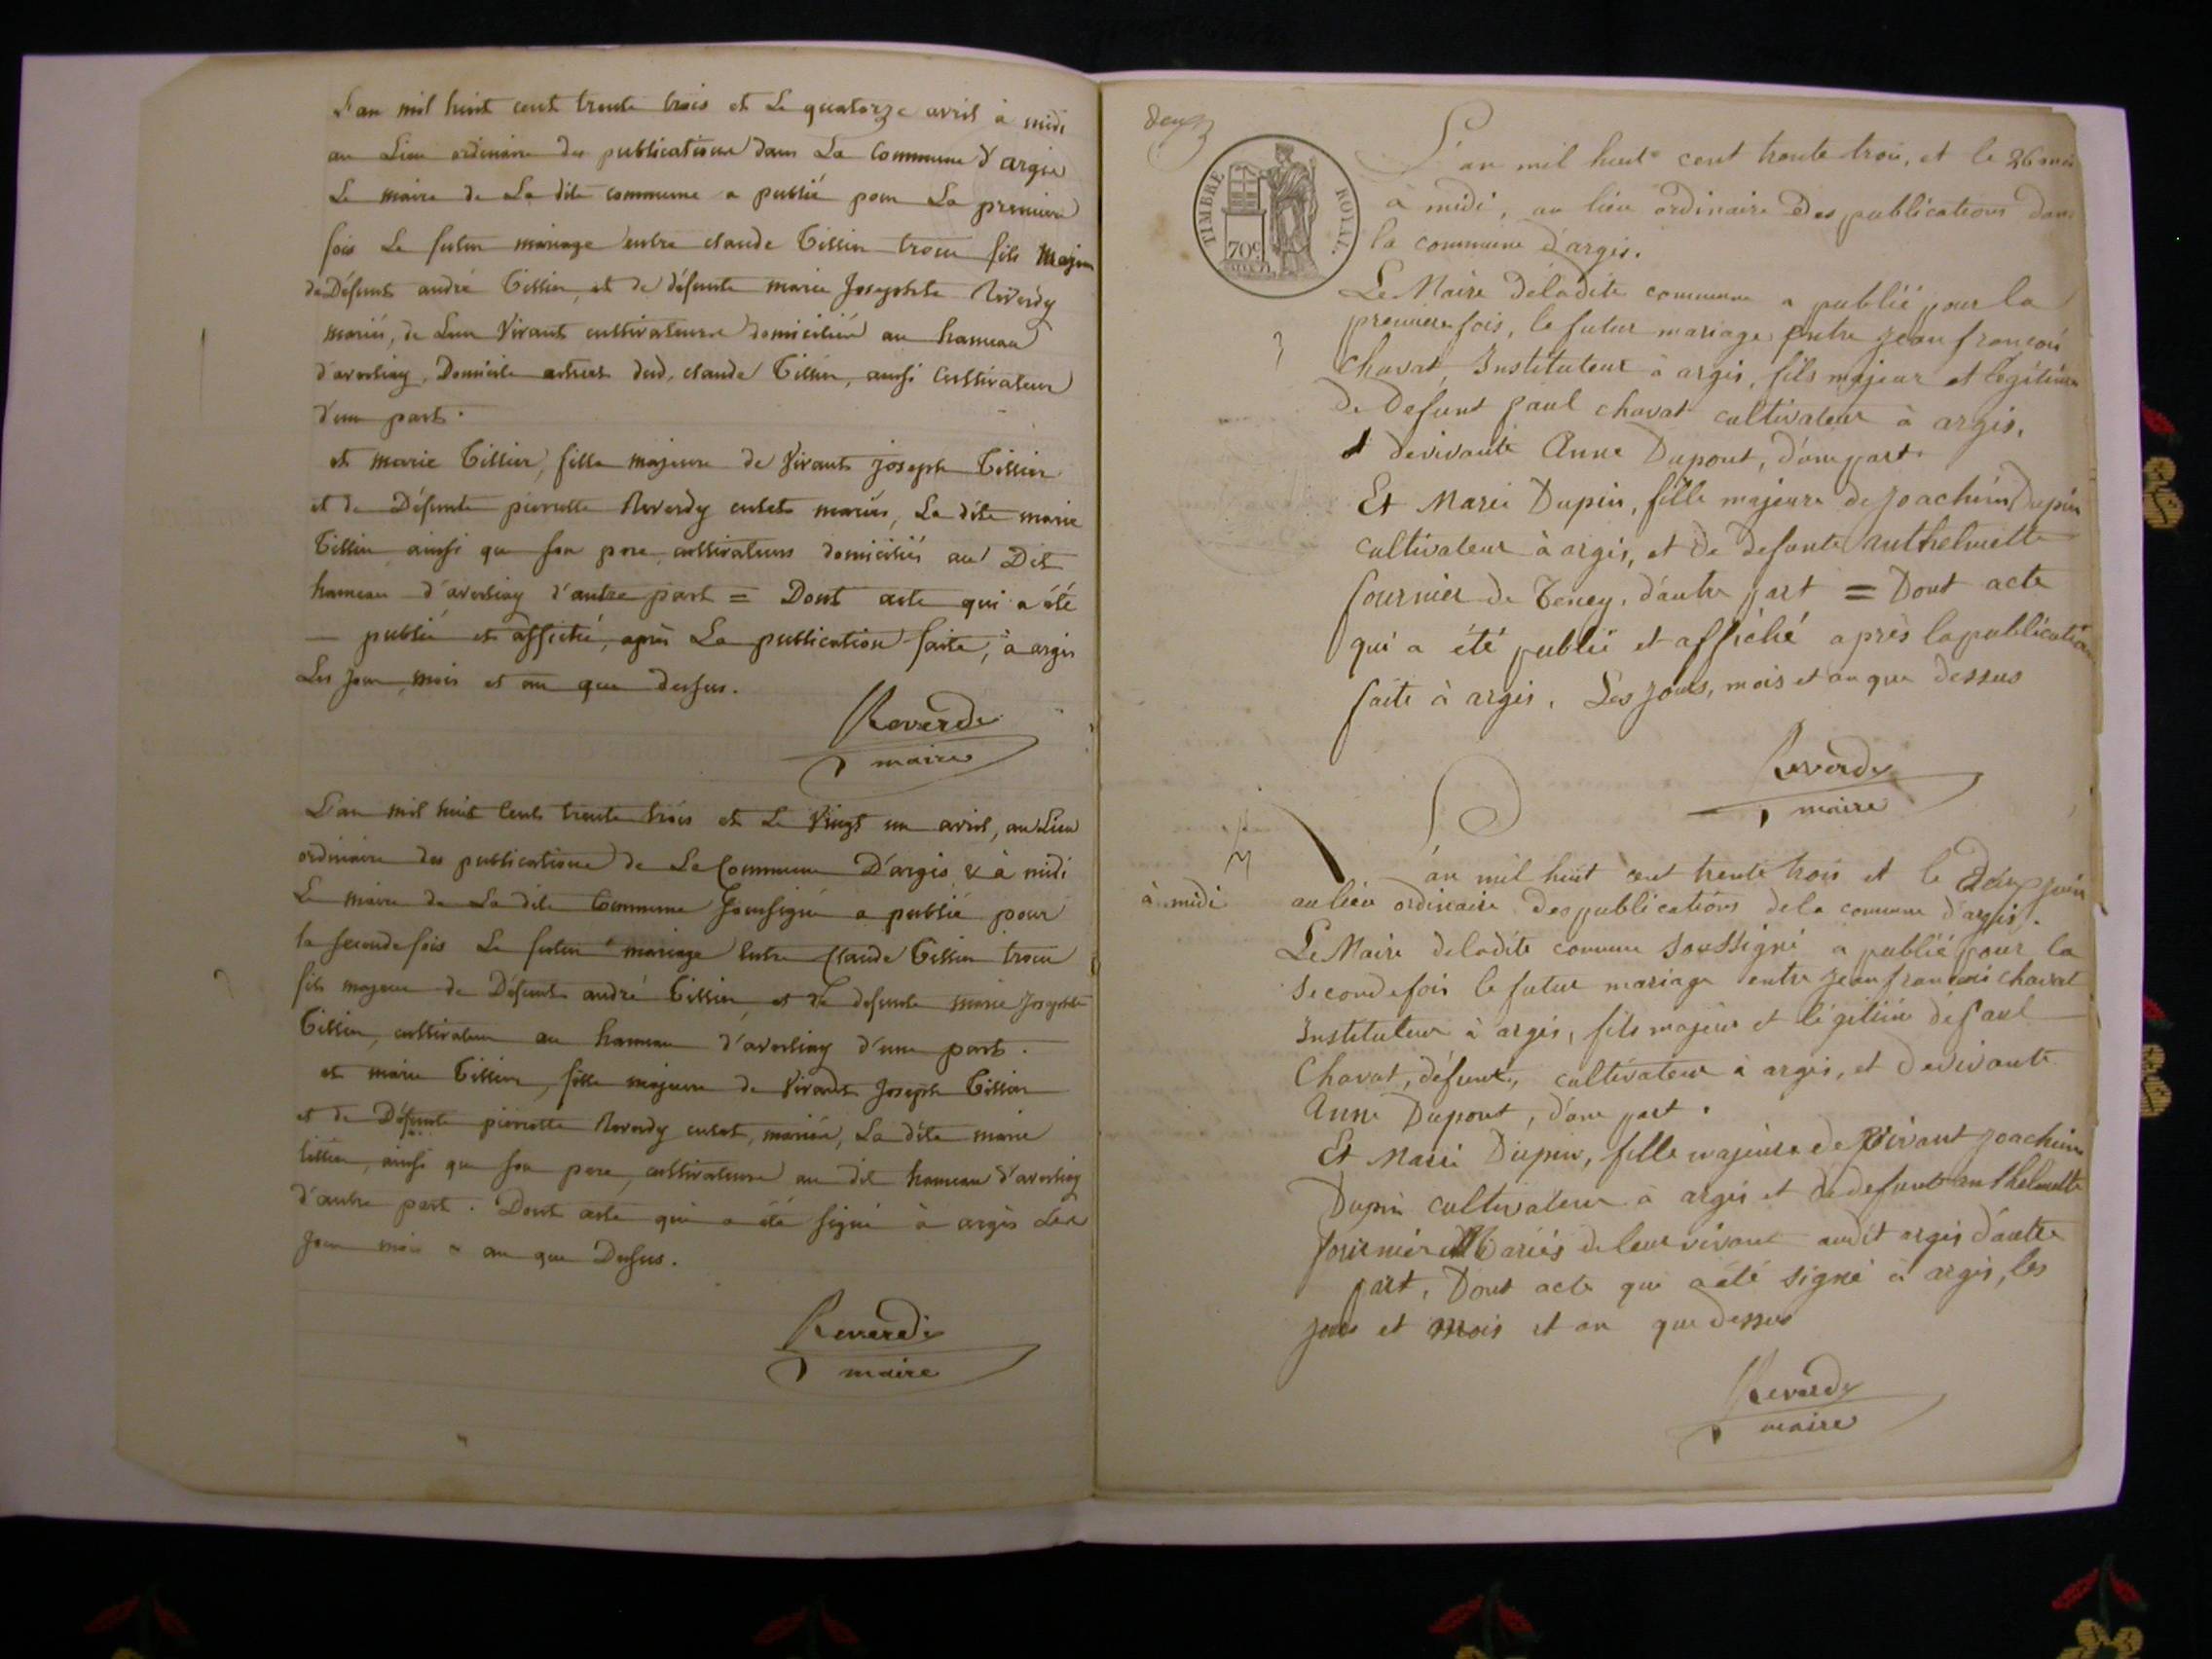 L'an mil huit cent trente trois et Le quatorze avril à midi
au Lieu ordinaire des publications dans La Commune d'argis
Le maire de La dite commune a publié pour La premiere
fois Le futur mariage entre claude Tissier trou fils majeur
de Défunt andré Tissier, et de défunte marie Josephte Reverdy
mariés, de Leur Vivant cultivateurs domiciliés au hameau
d'averliaz, Domicile actuel dud. claude Tissier, aussi Cultivateur
d'une part.
et marie Tissier, fille majeure de Vivant joseph Tissier
et de Défunte pierrette Reverdy culet mariés, La dite marie
Tissier ainsi que son pere cultivateurs domiciliés au Dit
hameau d'averliaz d'autre part = Dont acte qui a été
publié et affiché, après La publication faite, à argis
Les jour, mois et an que dessus.
Reverdy
maire
L'an mil huit Cent trente trois et Le Vingt un avril, au Lieu
ordinaire des publications de La Commune D'argis & à midi
Le maire de La dite Commune soussigné a publié pour
la seconde fois Le futur mariage entre Claude Tissier trou
fils majeur de Défunt andré Tissier, et de defunte marie Josephte
Tissier, cultivateur au hameau d'averliaz d'une part.
et marie Tissier, fille majeure de Vivant Joseph Tissier
et de Défunte pierrette Reverdy culet, mariés, La dite marie
tissier, ainsi que son pere, cultivateurs au dit hameau d'averliaz
d'autre part. Dont acte qui a été signé à argis Les
jour mois & an que Dessus.
Reverdy
maire
deux
TIMBRE ROYAL
70c
L'an mil huit cent trente trois, et le 26 mai
à midi, au lieu ordinaire des publications dans
la commune d'argis.
Le Maire de ladite commune a publié pour la
premiere fois, le futur mariage entre jean françois
Chavat, Instituteur à argis, fils majeur et légitime
de Defunt paul chavat cultivateur à argis,
et de vivante Anne Dupont, d'une part.
Et Marie Dupin, fille majeure de joachim Dupin
cultivateur à argis, et de defunte anthelmette
fournier de Tenay, d'autre part = Dont acte
qui a été publié et affiché après la publication
faite à argis, Les jours, mois et an que dessus
Reverdy
maire
L'an mil huit cent trente trois et le deux juin
à midi
au lieu ordinaire des publications de la commune d'argis.
Le Maire de ladite commune soussigné a publié pour la
seconde fois le futur mariage entre jean françois chavat
Instituteur à argis, fils majeur et légitime de paul
Chavat, défunt, cultivateur à argis, et de vivante
Anne Dupont, d'une part.
Et Marie Dupin, fille majeure de vivant joachim
Dupin cultivateur à argis et de defunte anthelmette
fournier Mariés de leur vivant audit argis d'autre
part, Dont acte qui a été signé à argis, les
jours et mois et an que dessus
Reverdy
maire